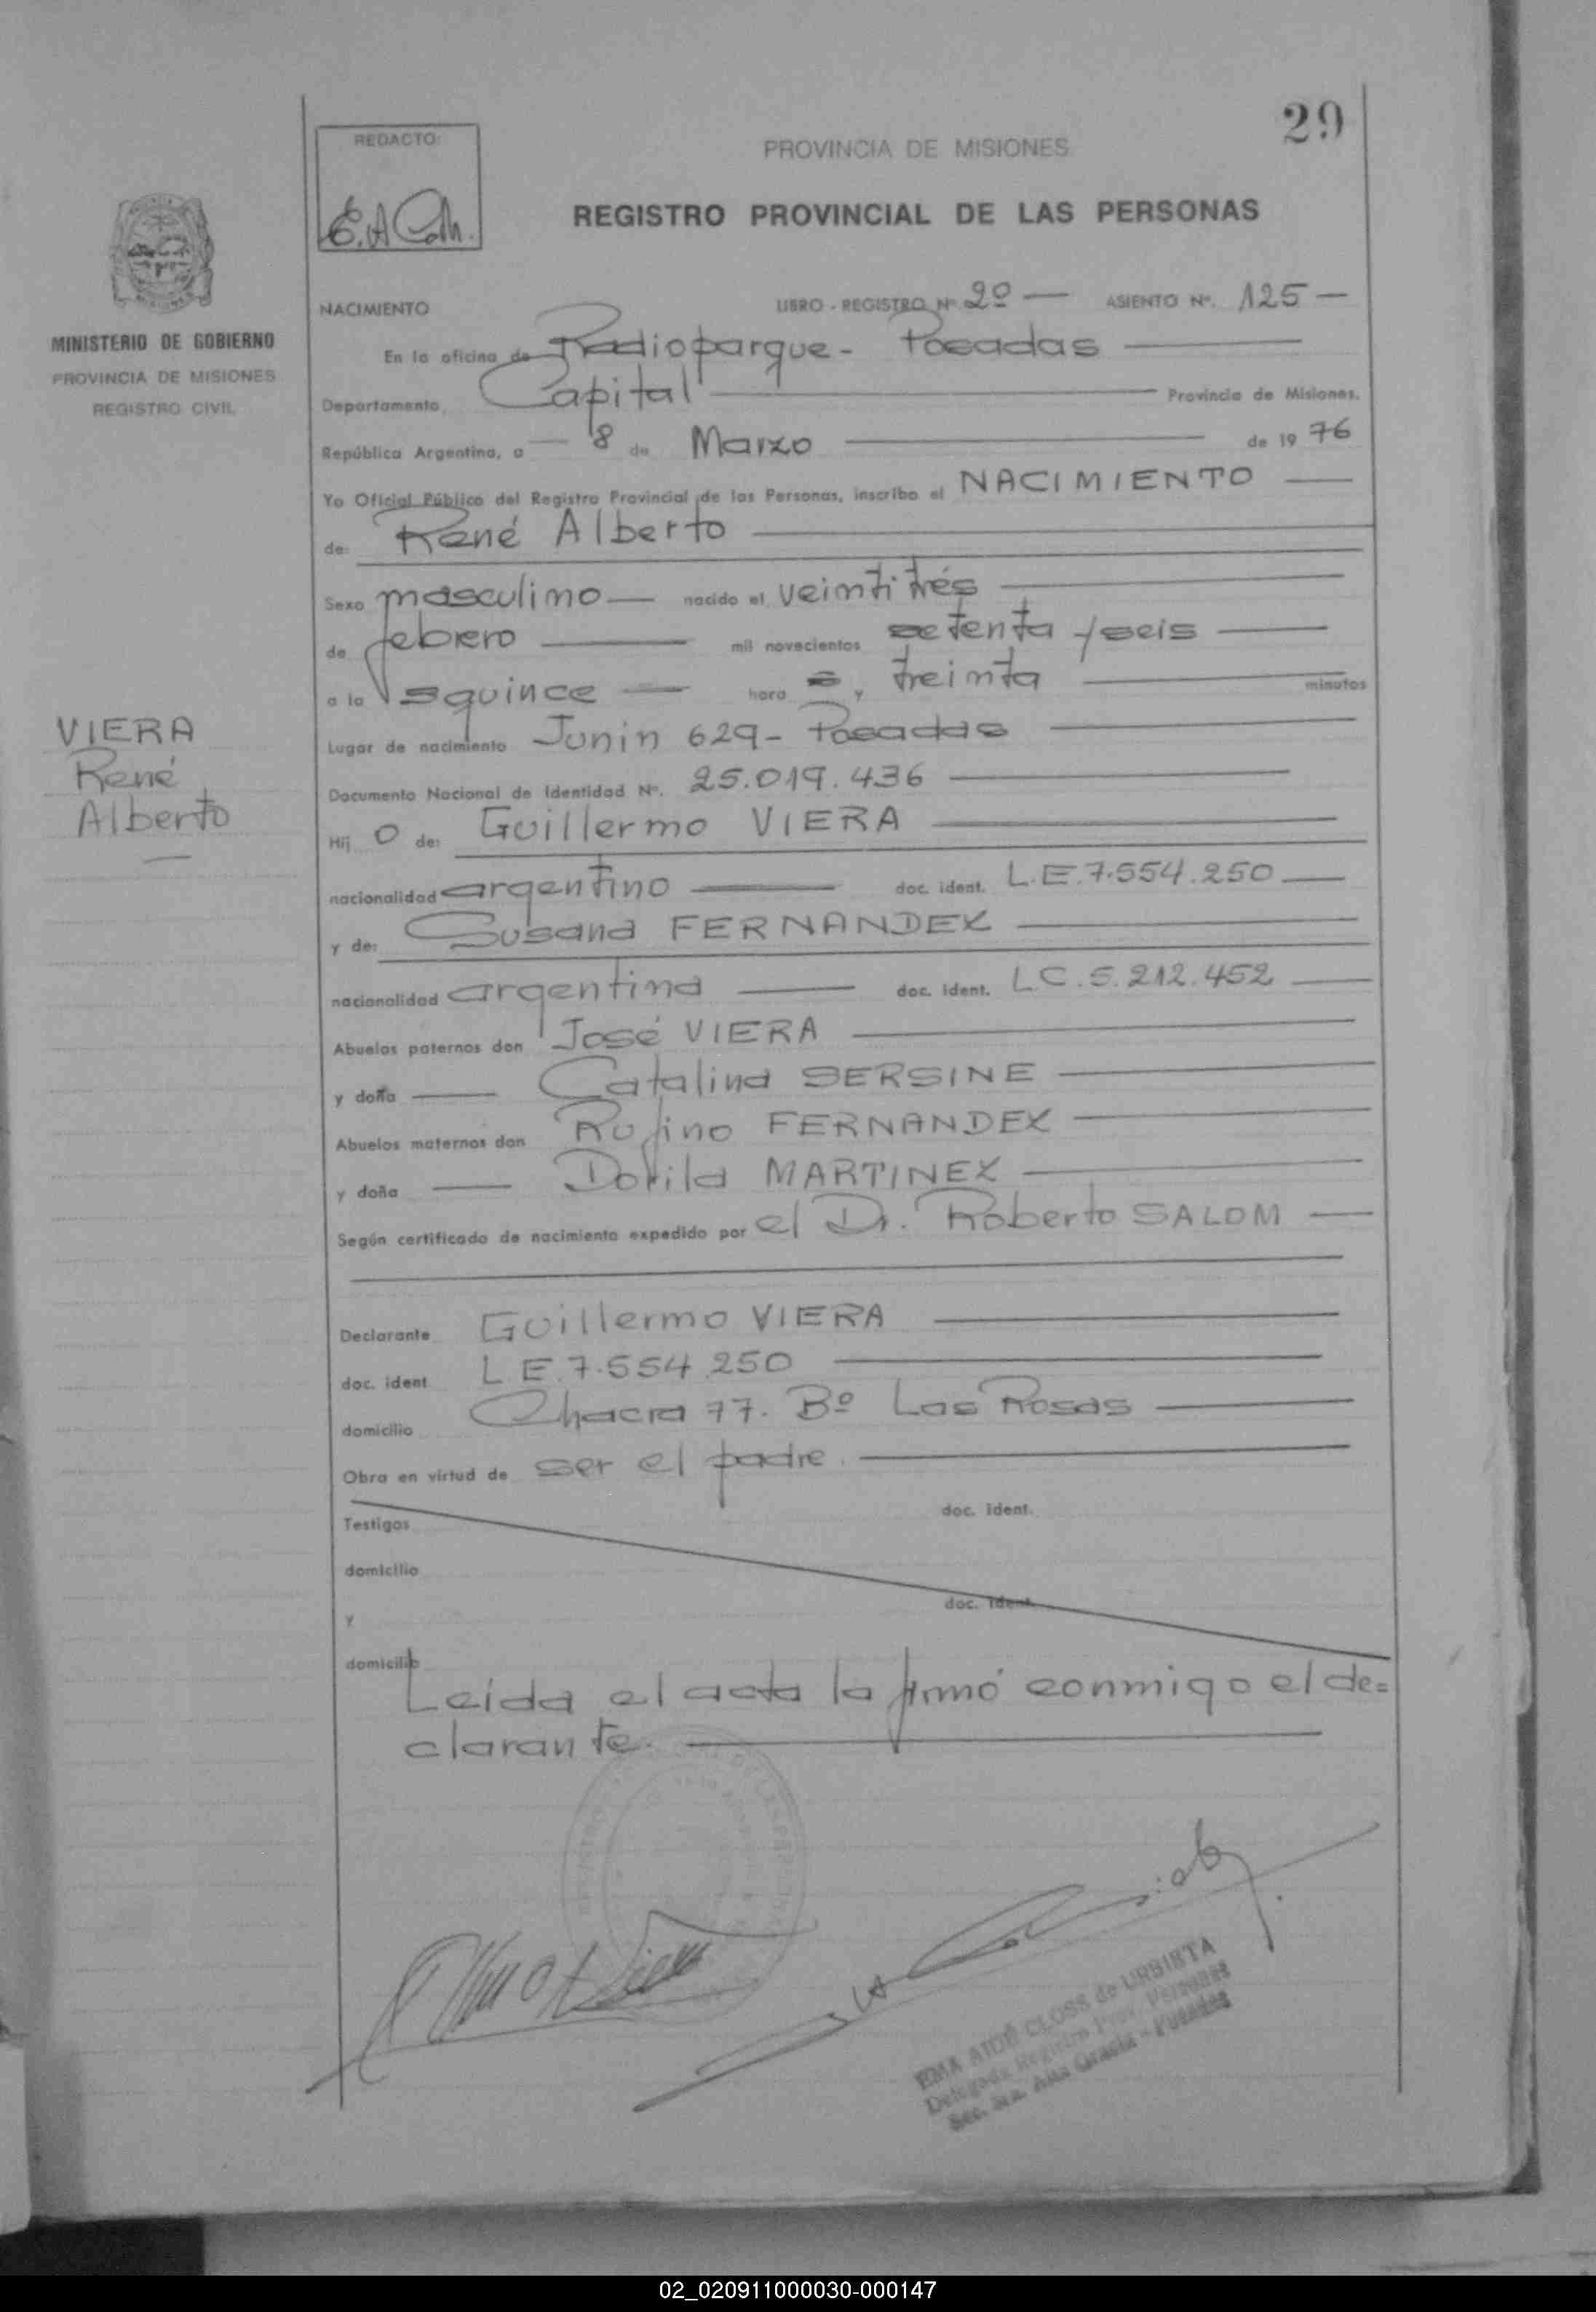 29
REDACTO:
PROVINCIA DE MISIONES
REGISTRO PROVINCIAL DE LAS PERSONAS
MINISTERIO DE GOBIERNO
PROVINCIA DE MISIONES
REGISTRO CIVIL
NACIMIENTO LIBRO - REGISTRO Nº 2º — ASIENTO Nº. 125 —
En la oficina de Radioparque - Posadas
Departamento Capital Provincia de Misiones.
República Argentina, a 8 de Marzo de 1976
Yo Oficial Público del Registro Provincial de las Personas, inscribo el NACIMIENTO
de: René Alberto
Sexo masculino — nacido el veintitrés
de febrero mil novecientos setenta y seis
a la s quince hora s y treinta minutos
VIERA
René
Alberto
Lugar de nacimiento Junin 629 - Posadas
Documento Nacional de Identidad Nº. 25.019.436
Hij o de: Guillermo VIERA
nacionalidad argentino doc. ident. L.E.7.554.250
y de: Susana FERNANDEZ
nacionalidad argentina doc. ident. L.C.5.212.452
Abuelos paternos don José VIERA
y doña Catalina SERSINE
Abuelos maternos don Rufino FERNANDEZ
y doña Dorila MARTINEZ
Según certificado de nacimiento expedido por el Dr. Roberto SALOM
Declarante Guillermo VIERA
doc. ident L.E.7.554.250
domicilio Chacra 77. Bº Las Rosas
Obra en virtud de ser el padre.
Testigos doc. ident.
domicilio
y doc. ident.
domicilio
Leida el acta la firmó conmigo el de=
clarante.
EMA AIDÉ CLOSS de URBIETA
Delegada Registro Prov. Personas
Sec. Sra. Alta Gracia - Posadas
02_020911000030-000147